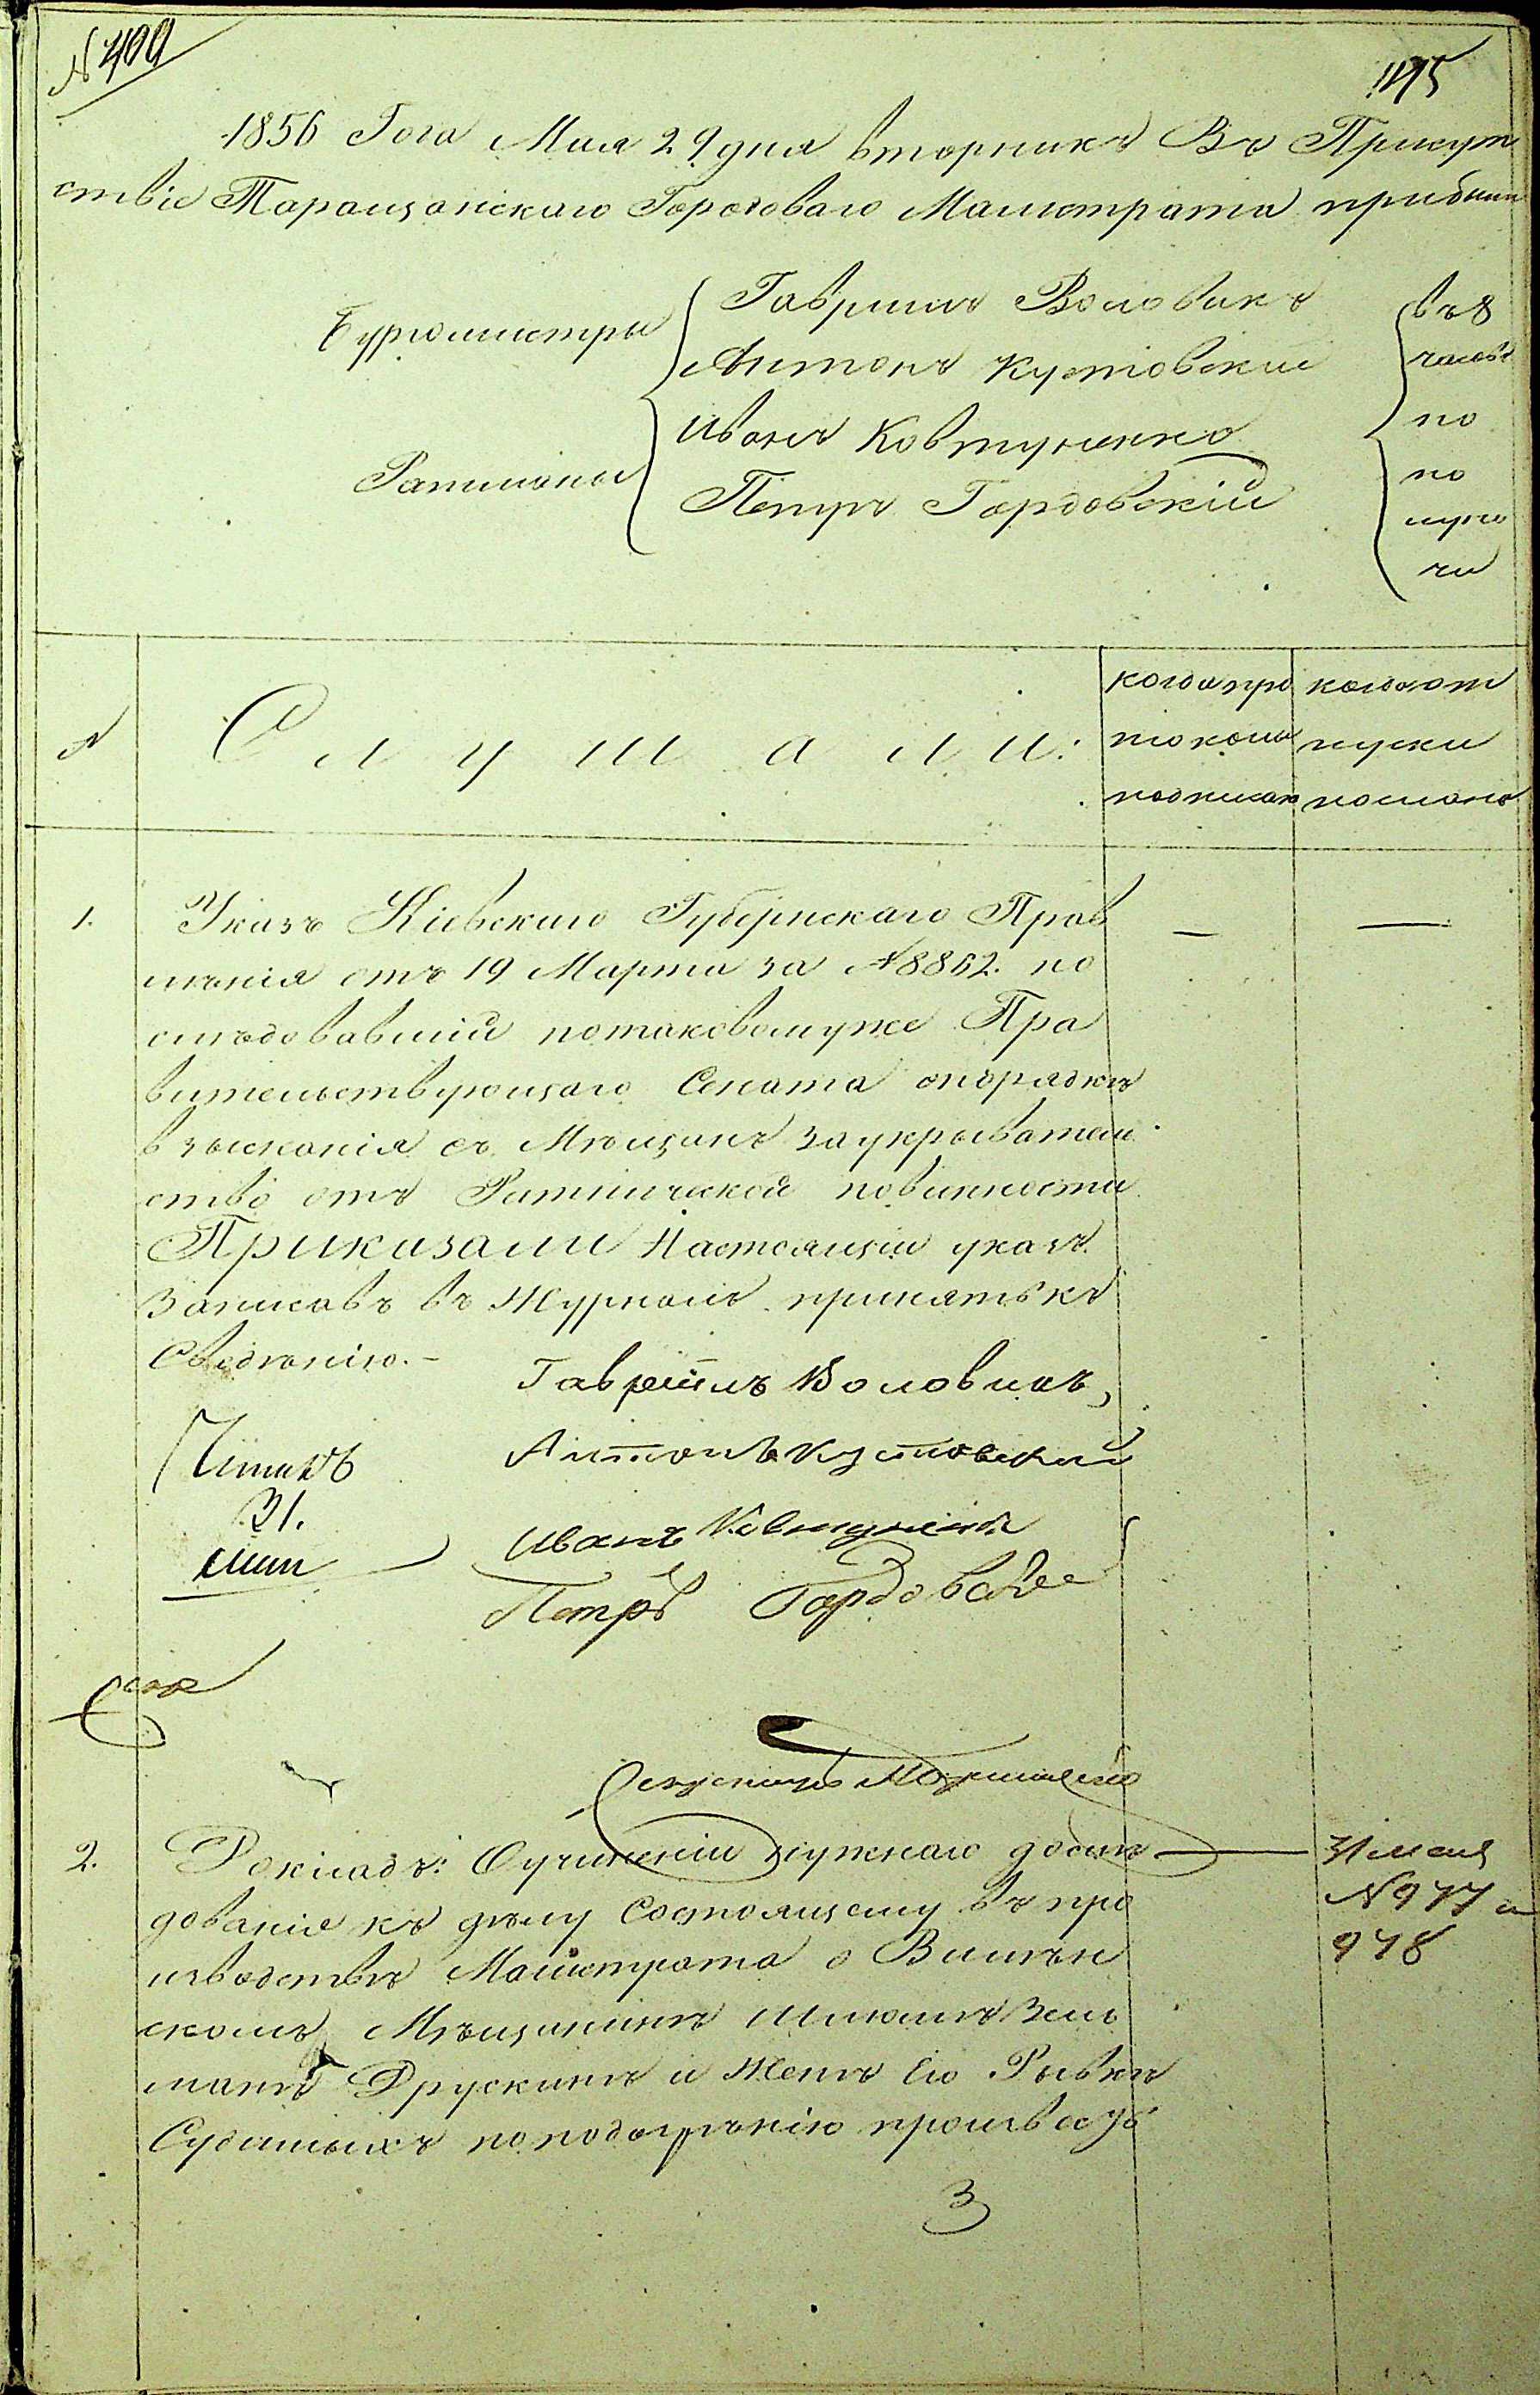 № 400
1856 Года Мая 29 дня вторникъ Въ Присут
ствіе Таращанскаго Городоваго Магистрата прибыли
Бургомистры
Гавриилъ Воловикъ
Антонъ Кустовский
Ратманы
Иванъ Ковтуненко
Петръ Гордовскій
въ 8
часовъ
по
по
луно
чи
№
Слушали:
когда про
токолъ
подписан
когда от
пуски
посланы
1.
Указъ Кіевскаго Губернскаго Прав
ленія отъ 19 Марта за №8862. по
слѣдовавшій по таковому же Пра
вительствующаго Сената опорядкѣ
взысканія съ Мѣщанъ за укрыватель
ство отъ Ратнической повинности
Приказали Настоящій указъ
Записавъ въ Журналъ принять къ
Сведѣнію. –
Гавриилъ Воловикъ
Читалъ
Антонъ Кустовский
31.
мая
Иванъ Ковтуненко
Петръ Гордовский
2.
Докладъ: Оучиненіи нужнаго дослѣ
дованія къ дѣлу Состоящему въ про
изводствѣ Магистрата о Виленс
комъ Мѣщанинѣ Шлюмѣ Зель
манѣ Друскинѣ и Женѣ Его Рывкѣ
Судимыхъ по подозрѣнію
31 мая
№ 977 и
978
3